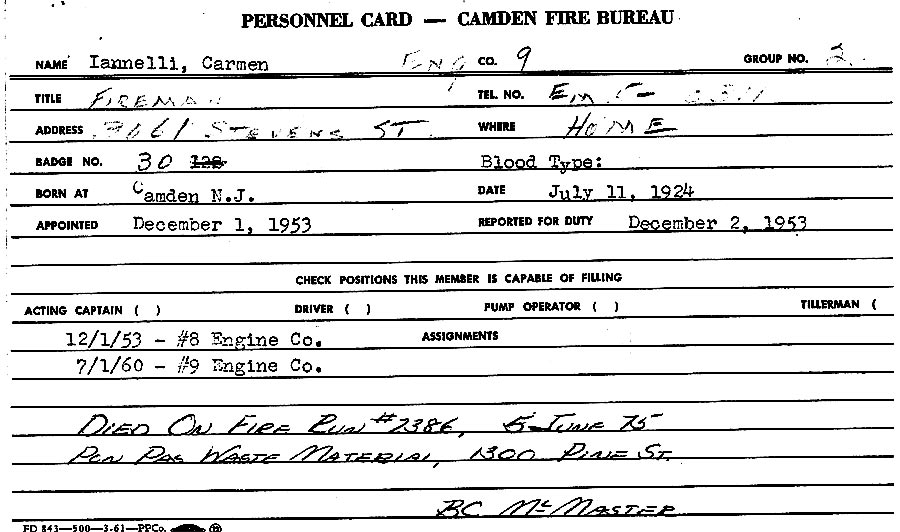 PERSONNEL CARD — CAMDEN FIRE BUREAU
NAME Iannelli, Carmen ENG CO. 9 GROUP NO. 2
TITLE FIREMAN TEL. NO. EM 5-
ADDRESS STEVENS ST. WHERE HOME
BADGE NO. 30 128 Blood Type:
BORN AT Camden N.J. DATE July 11, 1924
APPOINTED December 1, 1953 REPORTED FOR DUTY December 2, 1953
CHECK POSITIONS THIS MEMBER IS CAPABLE OF FILLING
ACTING CAPTAIN ( ) DRIVER ( ) PUMP OPERATOR ( ) TILLERMAN (
12/1/53 - #8 Engine Co. ASSIGNMENTS
7/1/60 - #9 Engine Co.
DIED ON FIRE RUN #2386, 5 JUNE 75
PEN WASTE MATERIAL, 1300 PINE ST.
BC McMASTER
FD 843—500—3-61—PPCo.